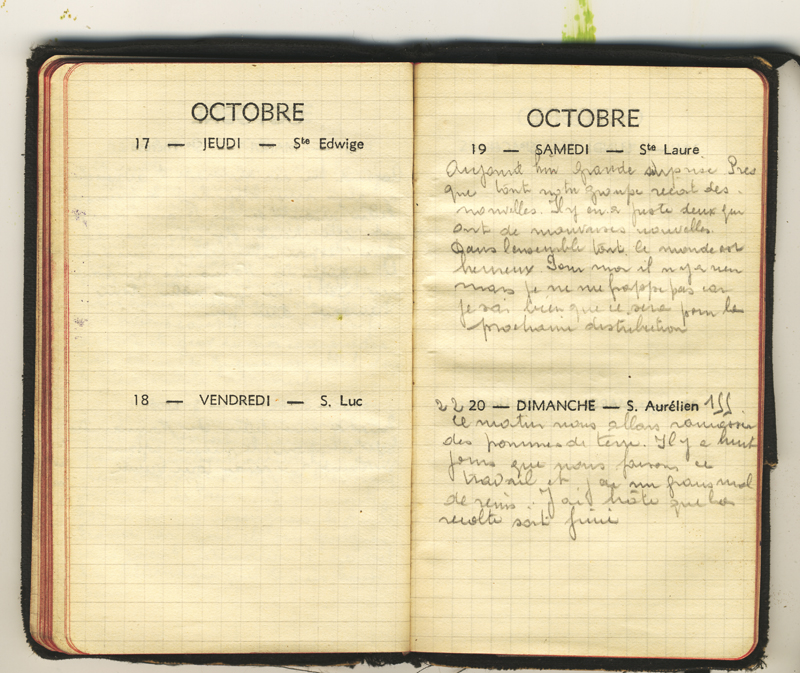 OCTOBRE
17 — JEUDI — Ste Edwige
18 — VENDREDI — S. Luc
OCTOBRE
19 — SAMEDI — Ste Laure
Aujourd'hui grande surprise Pres
que tout notre groupe recoit des
nouvelles. Il y en a juste deux qui
ont de mauvaises nouvelles.
Dans l'ensemble tout le monde est
heureux Pour moi il n'y a rien
mais je ne me frappe pas car
je sais bien que ce sera pour la
prochaine distribution
22 20 — DIMANCHE — S. Aurélien 155
Ce matin nous allons
des pommes de terre. Il y a huit
jours que nous faisons ce
travail et j'ai un grand mal
de reins. J'ai hâte que la
recolte soit finie